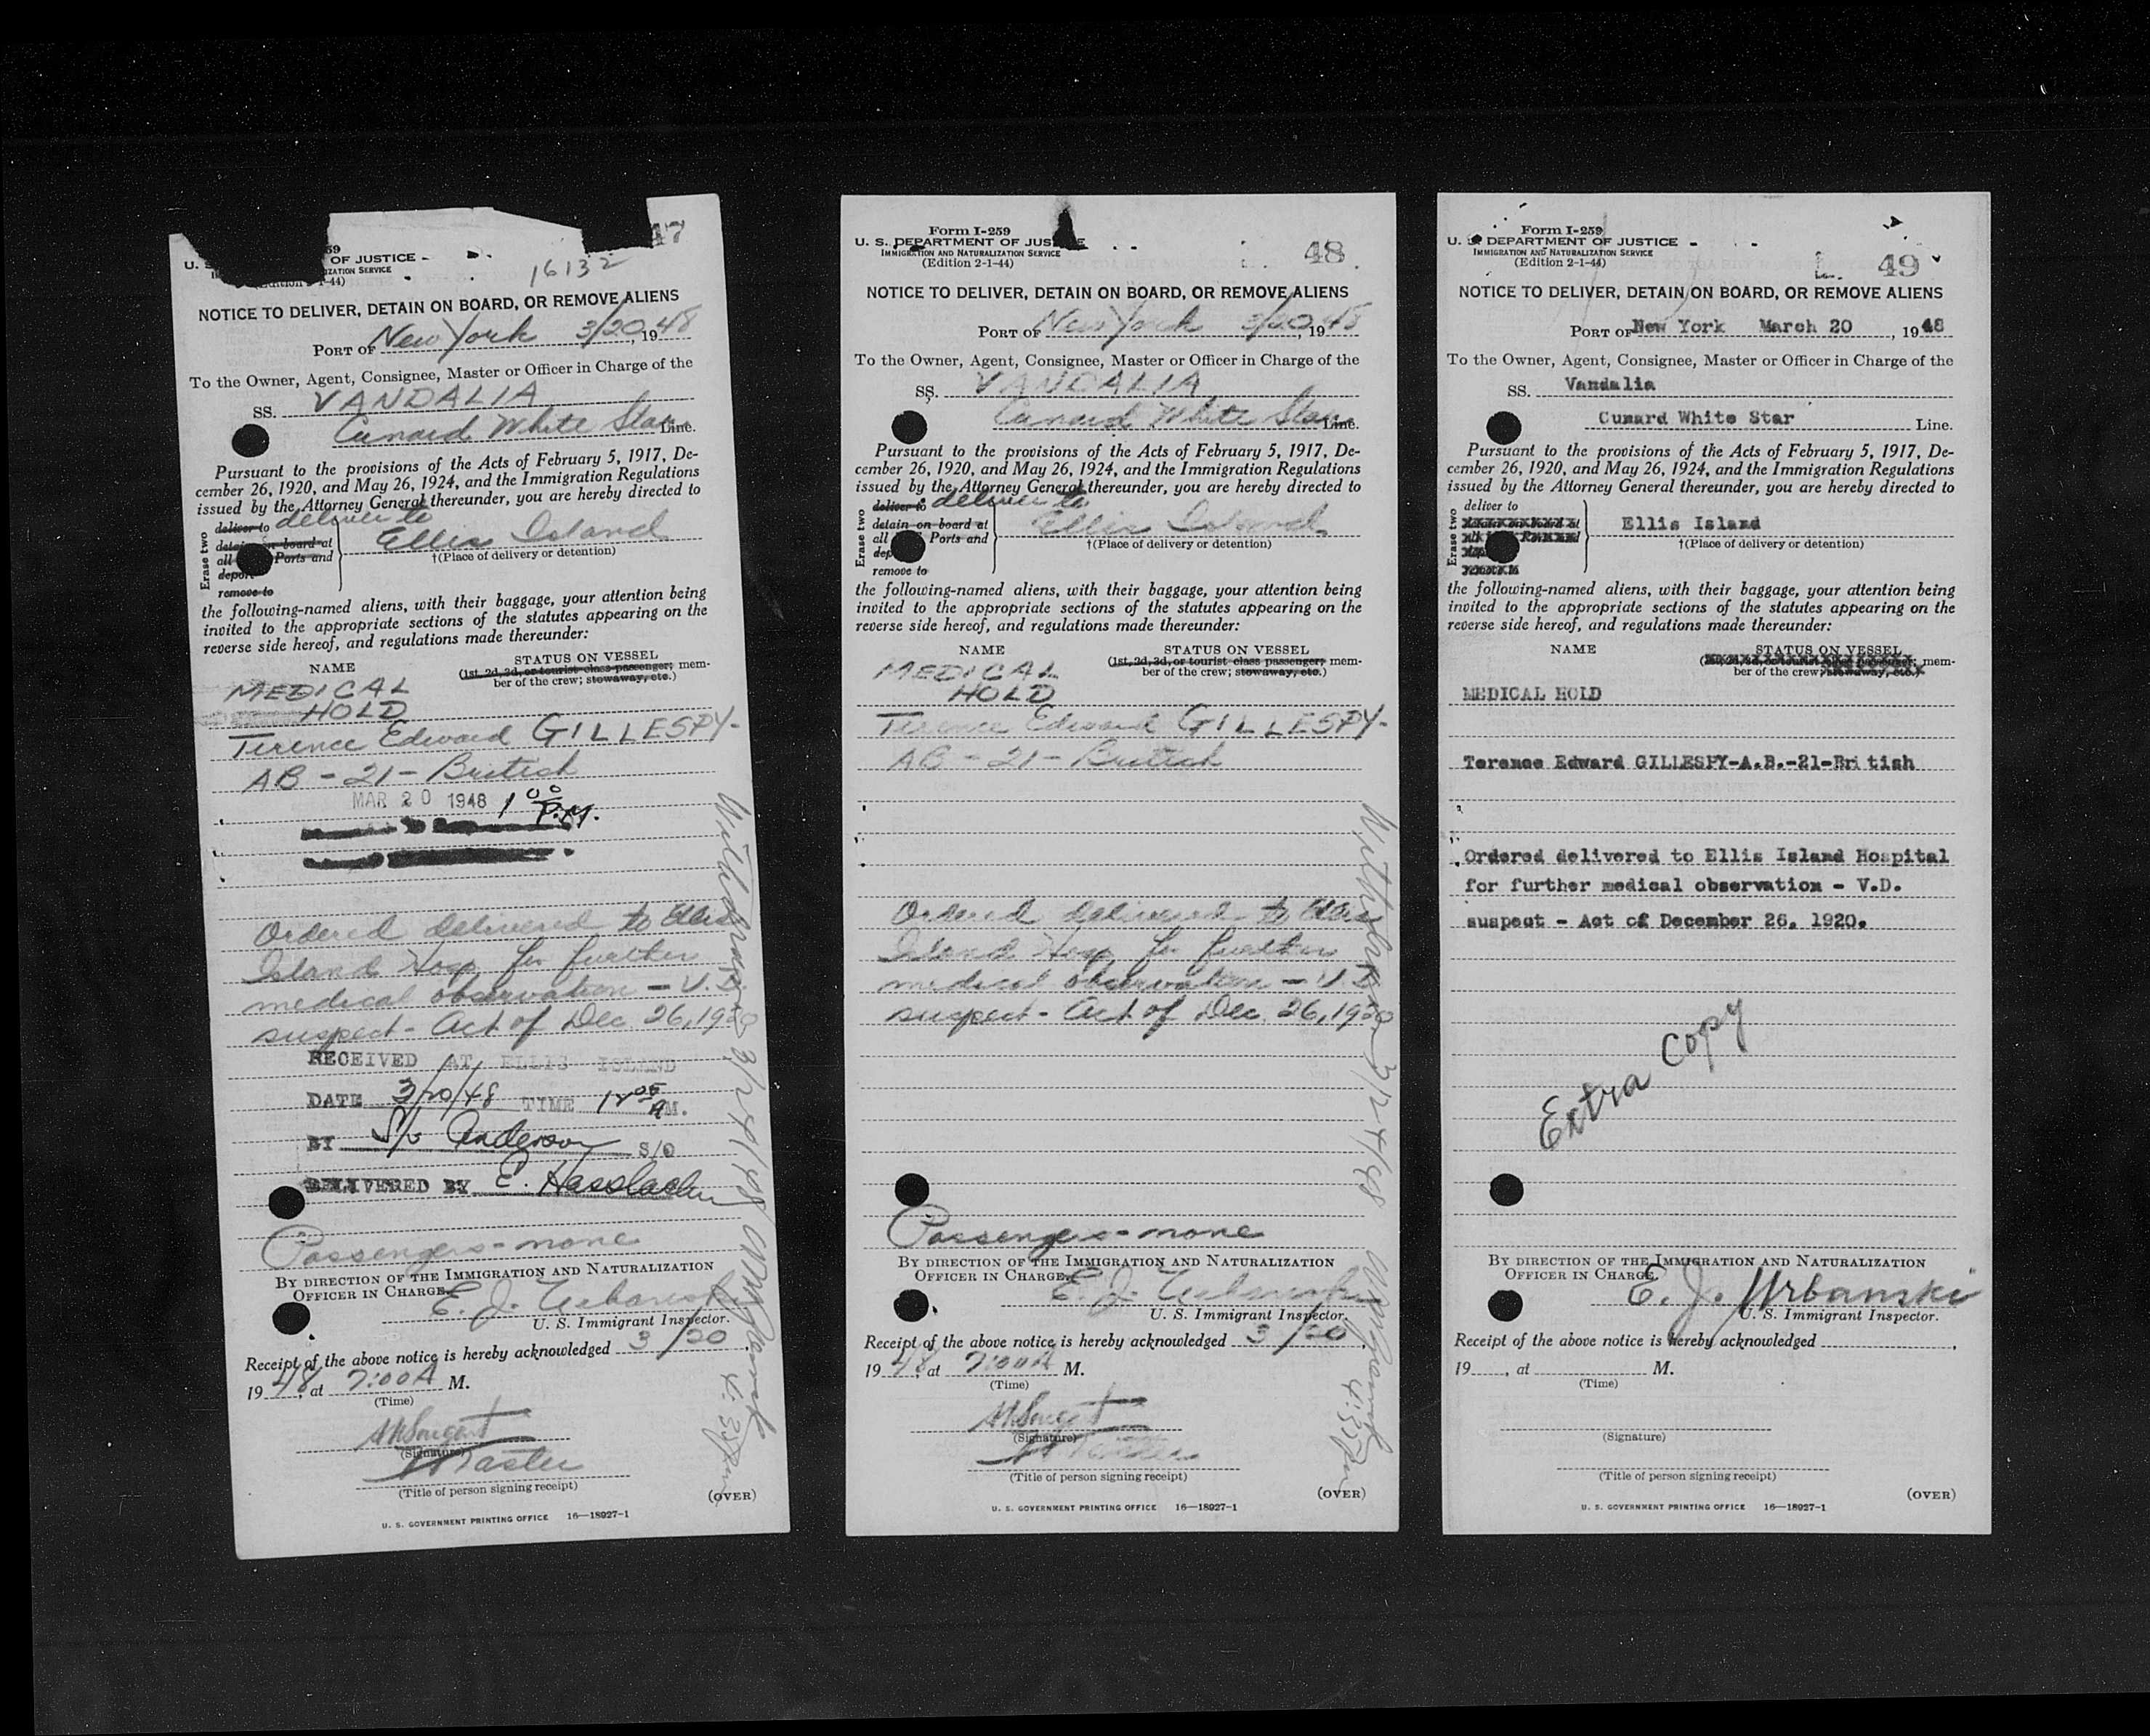 47
59
U. S. OF JUSTICE
IZATION SERVICE
16132
NOTICE TO DELIVER, DETAIN ON BOARD, OR REMOVE ALIENS
PORT OF New York 3/20, 1948
To the Owner, Agent, Consignee, Master or Officer in Charge of the
SS. VANDALIA
Cunard White Star Line.
Pursuant to the provisions of the Acts of February 5, 1917, De-
cember 26, 1920, and May 26, 1924, and the Immigration Regulations
issued by the Attorney General thereunder, you are hereby directed to
Erase two
deliver to deliver to
detain on board at
all Ports and
Ellis Island
†(Place of delivery or detention)
remove to
the following-named aliens, with their baggage, your attention being
invited to the appropriate sections of the statutes appearing on the
reverse side hereof, and regulations made thereunder:
NAME STATUS ON VESSEL
(1st, 2d, 3d, or tourist class passenger; mem-
ber of the crew; stowaway, etc.)
MEDICAL
HOLD
Terence Edward GILLESPY-
AB - 21 - British
MAR 20 1948 1 00 P.M.
Ordered delivered to Ellis
Island Hosp for further
medical observation - V.D.
suspect - Act of Dec 26, 1920
RECEIVED AT ELLIS ISLAND
DATE 3/20/48 TIME M.
BY S/o Anderson S/O
DELIVERED BY E. Hasslacher
Withdrawn 3/24/48
Passengers - none
BY DIRECTION OF THE IMMIGRATION AND NATURALIZATION
OFFICER IN CHARGE.
E. J. Urbanski
U. S. Immigrant Inspector.
Receipt of the above notice is hereby acknowledged 3/20,
1948, at 7:00 A M.
(Time)
(Signature)
Master
(Title of person signing receipt)
(OVER)
U. S. GOVERNMENT PRINTING OFFICE 16—18927-1
Form I-259
U. S. DEPARTMENT OF JUSTICE
IMMIGRATION AND NATURALIZATION SERVICE
(Edition 2-1-44)
48
NOTICE TO DELIVER, DETAIN ON BOARD, OR REMOVE ALIENS
PORT OF New York 3/20, 1948
To the Owner, Agent, Consignee, Master or Officer in Charge of the
SS. VANDALIA
Cunard White Star Line.
Pursuant to the provisions of the Acts of February 5, 1917, De-
cember 26, 1920, and May 26, 1924, and the Immigration Regulations
issued by the Attorney General thereunder, you are hereby directed to
Erase two
deliver to deliver to
detain on board at
all Ports and
Ellis Island
†(Place of delivery or detention)
remove to
the following-named aliens, with their baggage, your attention being
invited to the appropriate sections of the statutes appearing on the
reverse side hereof, and regulations made thereunder:
NAME STATUS ON VESSEL
(1st, 2d, 3d, or tourist class passenger; mem-
ber of the crew; stowaway, etc.)
MEDICAL
HOLD
Terence Edward GILLESPY-
AB - 21 - British
Ordered delivered to Ellis
Island Hosp for further
medical observation - V.D.
suspect - Act of Dec 26, 1920
Withdrawn 3/24/48
Passengers - none
BY DIRECTION OF THE IMMIGRATION AND NATURALIZATION
OFFICER IN CHARGE.
E. J. Urbanski
U. S. Immigrant Inspector.
Receipt of the above notice is hereby acknowledged 3/20,
1948, at 7:00 A M.
(Time)
(Signature)
Master
(Title of person signing receipt)
(OVER)
U. S. GOVERNMENT PRINTING OFFICE 16—18927-1
Form I-259
U. S. DEPARTMENT OF JUSTICE
IMMIGRATION AND NATURALIZATION SERVICE
(Edition 2-1-44)
49
NOTICE TO DELIVER, DETAIN ON BOARD, OR REMOVE ALIENS
PORT OF New York March 20, 1948
To the Owner, Agent, Consignee, Master or Officer in Charge of the
SS. Vandalia
Cunard White Star Line.
Pursuant to the provisions of the Acts of February 5, 1917, De-
cember 26, 1920, and May 26, 1924, and the Immigration Regulations
issued by the Attorney General thereunder, you are hereby directed to
Erase two
deliver to
Ellis Island
†(Place of delivery or detention)
the following-named aliens, with their baggage, your attention being
invited to the appropriate sections of the statutes appearing on the
reverse side hereof, and regulations made thereunder:
NAME STATUS ON VESSEL
mem-
ber of the crew; stowaway, etc.)
MEDICAL HOLD
Terence Edward GILLESPY-A.B.-21-British
Ordered delivered to Ellis Island Hospital
for further medical observation - V.D.
suspect - Act of December 26, 1920.
Extra Copy
BY DIRECTION OF THE IMMIGRATION AND NATURALIZATION
OFFICER IN CHARGE.
E. J. Urbanski
U. S. Immigrant Inspector.
Receipt of the above notice is hereby acknowledged ,
19 , at M.
(Time)
(Signature)
(Title of person signing receipt)
(OVER)
U. S. GOVERNMENT PRINTING OFFICE 16—18927-1